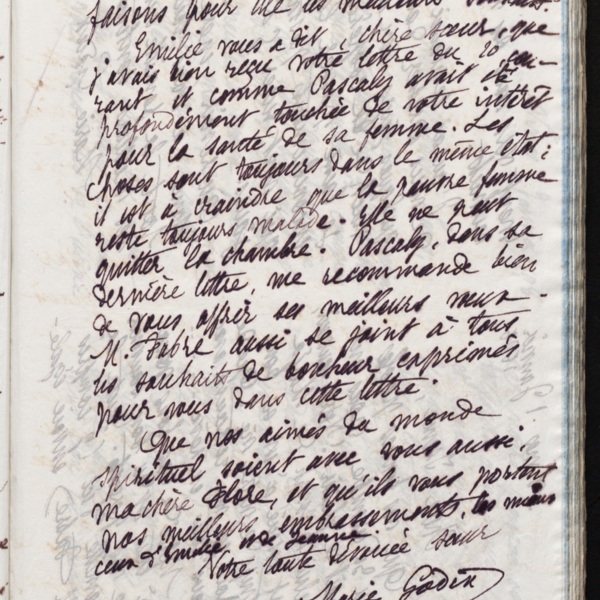 faisons pour
Emilie vous a dit, chère sœur, que
j'avais bien reçu votre lettre du 20 cou-
rant et comme Pascaly avait été
profondément touchée de votre intérêt
pour la santé de sa femme. Les
choses sont toujours dans le même état:
il est à craindre que la pauvre femme
reste toujours malade. Elle ne peut
quitter la chambre. Pascaly, dans sa
dernière lettre, me recommande bien
de vous offrir ses meilleurs vœux.
M. Fabre aussi se joint à tous
les souhaits de bonheur exprimés
pour vous dans cette lettre.
Que nos aimés du monde
spirituel soient avec vous aussi,
ma chère Flore, et qu'ils vous portent
nos meilleurs embrassements, les miens
ceux d'Emilie et de Jeanne
Votre toute dévouée sœur
Marie Godin